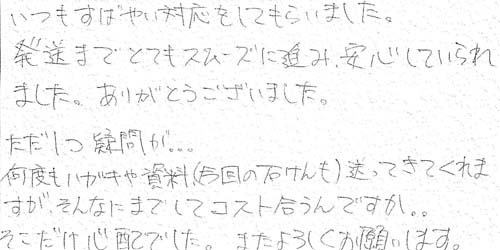 いつもすばやい対応をしてもらいました。
発送までとてもスムーズに進み、安心していられ
ました。ありがとうございました。
ただ1つ疑問が...
何度もハガキや資料(今回の石けんも)送ってきてくれま
すが、そんなにまでしてコスト合うんですか..
そこだけ心配でした。またよろしくお願いします。